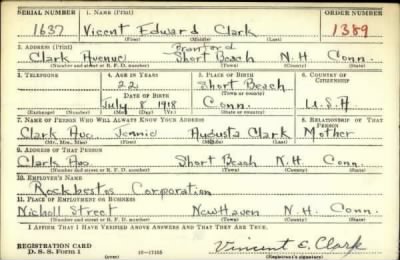 SERIAL NUMBER 1. NAME (Print) ORDER NUMBER
1637 Vicent Edward Clark 1389
(First) (Middle) (Last)
2. ADDRESS (Print) Branford
Clark Avenue Short Beach N.H. Conn.
(Number and street or R. F. D. number) (Town) (County) (State)
3. TELEPHONE 4. AGE IN YEARS 5. PLACE OF BIRTH 6. COUNTRY OF CITIZENSHIP
22 Short Beach
DATE OF BIRTH (Town or county)
July 8 1918 Conn. U.S.A
(Exchange) (Number) (Mo.) (Day) (Yr.) (State or country)
7. NAME OF PERSON WHO WILL ALWAYS KNOW YOUR ADDRESS 8. RELATIONSHIP OF THAT PERSON
Clark Ave. Jennie Augusta Clark Mother
(Mr., Mrs., Miss) (First) (Middle) (Last)
9. ADDRESS OF THAT PERSON
Clark Ave. Short Beach N.H. Conn.
(Number and street or R. F. D. number) (Town) (County) (State)
10. EMPLOYER'S NAME
Rockbestos Corporation
11. PLACE OF EMPLOYMENT OR BUSINESS
Nicholl Street New Haven N.H. Conn.
(Number and street or R. F. D. number) (Town) (County) (State)
I AFFIRM THAT I HAVE VERIFIED ABOVE ANSWERS AND THAT THEY ARE TRUE.
REGISTRATION CARD
D. S. S. Form 1 16—17105 Vincent E. Clark
(Registrant's signature)